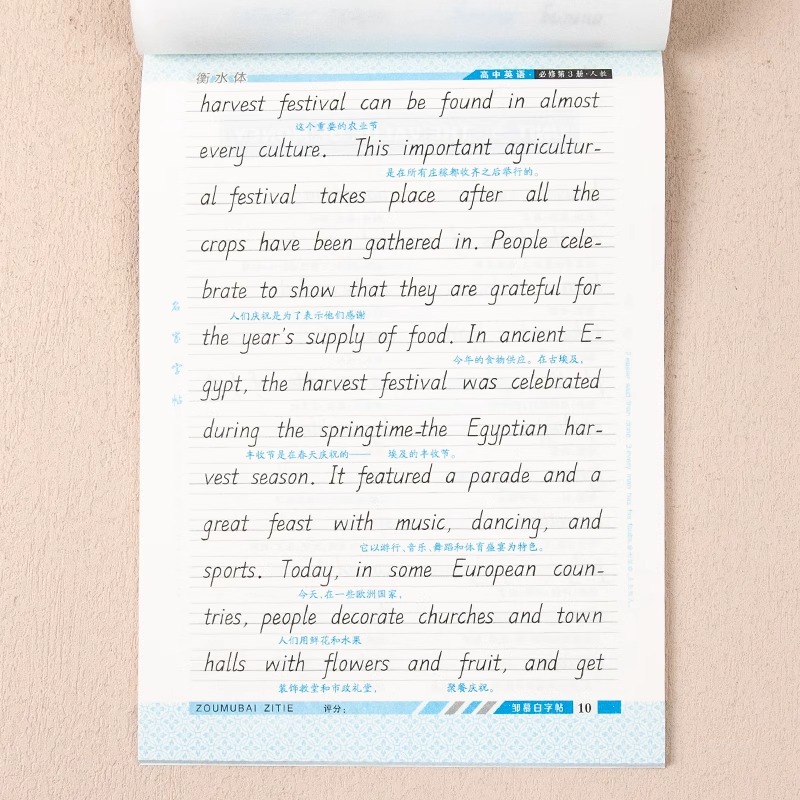 衡水体
高中英语·必修第3册·人教
harvest festival can be found in almost
这个重要的农业节
every culture. This important agricultur-
是在所有庄稼都收齐之后举行的。
al festival takes place after all the
crops have been gathered in. People cele-
brate to show that they are grateful for
人们庆祝是为了表示他们感谢
the year's supply of food. In ancient E-
今年的食物供应。在古埃及,
gypt, the harvest festival was celebrated
during the springtime-the Egyptian har-
丰收节是在春天庆祝的—— 埃及的丰收节。
vest season. It featured a parade and a
great feast with music, dancing, and
它以游行、音乐、舞蹈和体育盛宴为特色。
sports. Today, in some European coun-
今天,在一些欧洲国家,
tries, people decorate churches and town
人们用鲜花和水果
halls with flowers and fruit, and get
装饰教堂和市政礼堂, 聚餐庆祝。
名家字帖
ZOUMUBAI ZITIE 评分:
邹慕白字帖 10